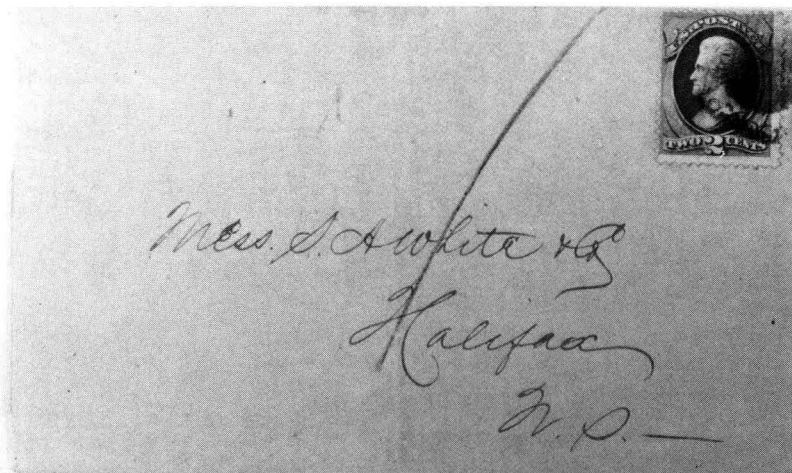 U.S. POSTAGE
TWO 2 CENTS
Mess. S. A White & Co
Halifax
N. S.